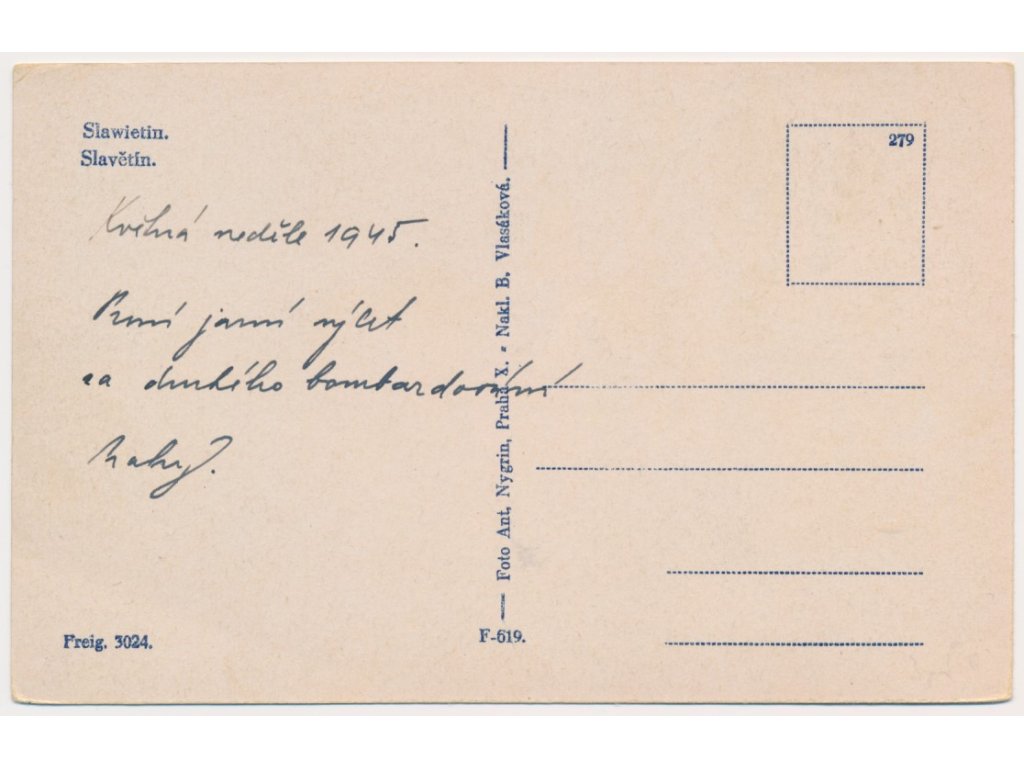 Slawietin.
Slavětín.
279
Květná neděle 1945.
První jarní výlet
za druhého bombardování
Prahy.
Foto Ant, Nygrin, Praha X. - Nakl. B. Vlasáková.
Freig. 3024.
F-619.